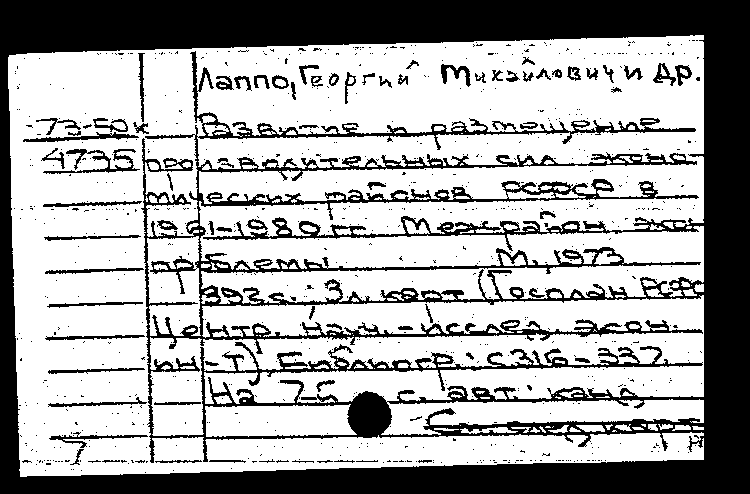 Лаппо, Георгий Михайлович и др.
73-50к Развитие и размещение
4735 производительных сил эконо-
мических районов РСФСР в
1961-1980 гг. Межрайон. экон
проблемы. М., 1973
392 с.; 3 л. карт (Госплан РСФС
Центр. науч.-исслед. экон.
ин-т). Библиогр.: с 316-337.
На 7-й с. авт.: канд
См. след карт
7